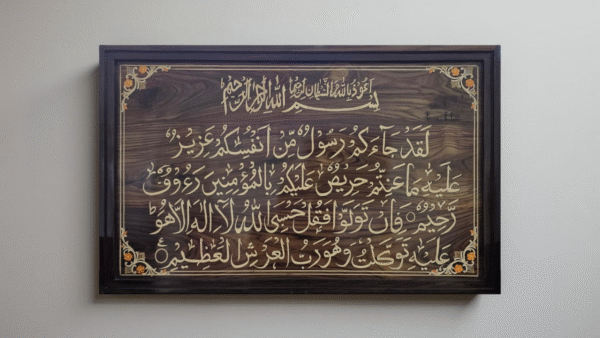 اعوذ بالله من الشيطان الرجيم
بسم الله الرحمن الرحيم
لَقَدْ جَاءَكُمْ رَسُوْلٌ مِّنْ اَنْفُسِكُمْ عَزِيْزٌ
عَلَيْهِ مَا عَنِتُّمْ حَرِيْصٌ عَلَيْكُمْ بِالْمُؤْمِنِيْنَ رَءُوْفٌ
رَّحِيْمٌ وَاِنْ تَوَلَّوْا فَقُلْ حَسْبِىَ اللهُ لَا اِلٰهَ اِلَّا هُوَ
عَلَيْهِ تَوَكَّلْتُ وَهُوَ رَبُّ الْعَرْشِ الْعَظِيْمِ